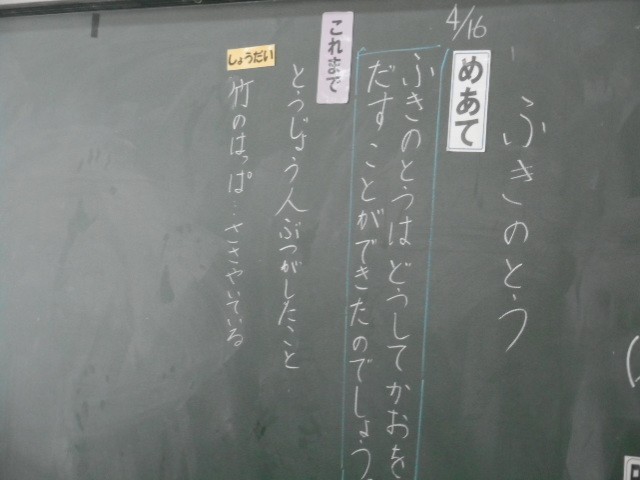 ふきのとう
4/16
めあて
ふきのとうはどうしてかおを
だすことができたのでしょう
これまで
とうじょう人ぶつがしたこと
しょうだい
竹のはっぱ…ささやいている